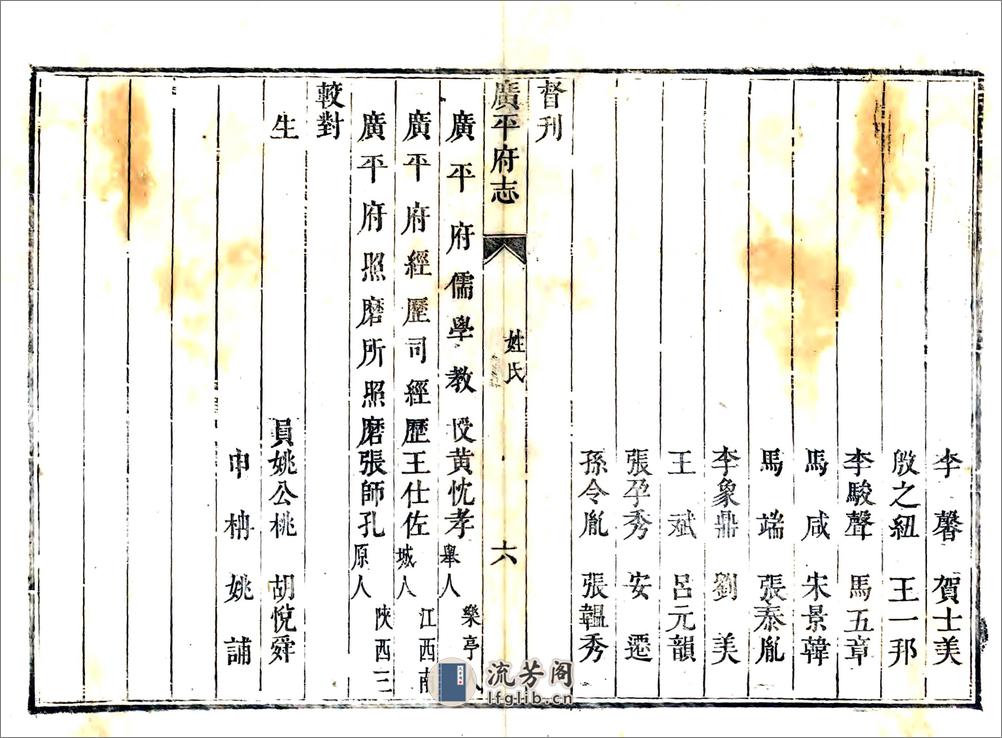 李馨　賀士美
殷之紐　王一邦
李駿聲　馬五章
馬咸　宋景韓
馬端　張泰胤
李象鼎　劉美
王斌　呂元韻
張孕秀　安遷
孫令胤　張韞秀
督刊
廣平府志　姓氏　六
廣平府儒學教授黃忱孝舉人樂亭人
廣平府經歷司經歷王仕佐江西南城人
廣平府照磨所照磨張師孔陝西三原人
較對
生員姚公桃　胡悅舜
申柟　姚誧
流芳阁
lfglib.cn